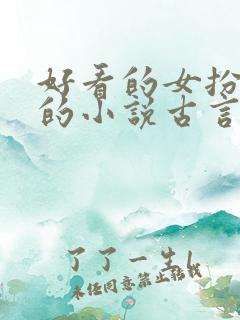 好看的女扮
的小说古言
了了一生l
未经同意禁止转载